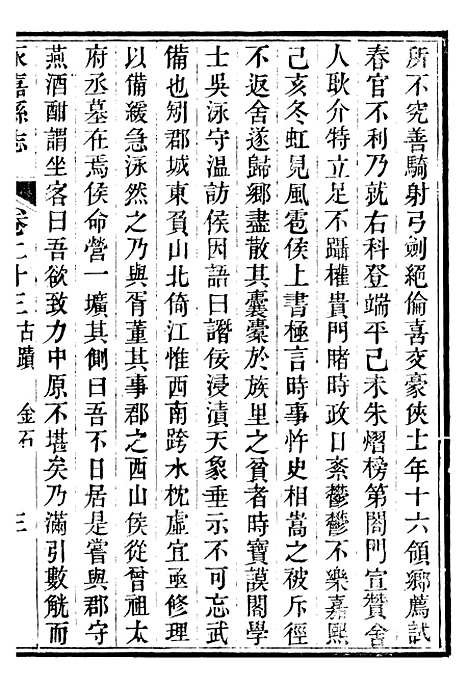 所不究善騎射弓劍絕倫喜交豪俠士年十六領鄉薦試
春官不利乃就右科登端平己未朱熠榜第閤門宣贊舍
人耿介特立足不躡權貴門睹時政日紊鬱鬱不樂嘉熙
己亥冬虹見風雹侯上書極言時事忤史相嵩之被斥徑
不返舍遂歸鄉盡散其囊橐於族里之貧者時寶謨閣學
士吳泳守溫訪侯因語曰譖佞浸漬天象垂示不可忘武
備也矧郡城東負山北倚江惟西南跨水枕虛宜亟修理
以備緩急泳然之乃與胥董其事郡之西山侯從曾祖太
府丞墓在焉侯命營一壙其側曰吾不日居是嘗與郡守
燕酒酣謂坐客曰吾欲致力中原不堪矣乃滿引數觥而
永嘉縣志 卷二十三 古蹟 金石 三